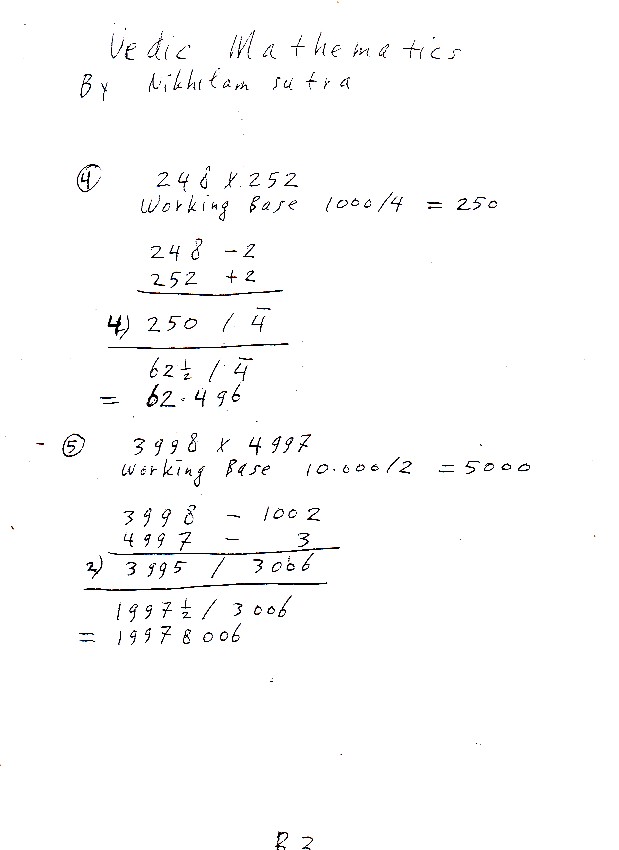 Vedic Mathematics
By Nikhilam sutra
④ 248 x 252
Working Base 1000/4 = 250
248 - 2
252 + 2
4) 250 / 4̅
62 ½ / 4̅
= 62.496
- ⑤ 3998 x 4997
Working Base 10.000/2 = 5000
3998 - 1002
4997 - 3
2) 3995 / 3006
1997 ½ / 3006
= 19978006